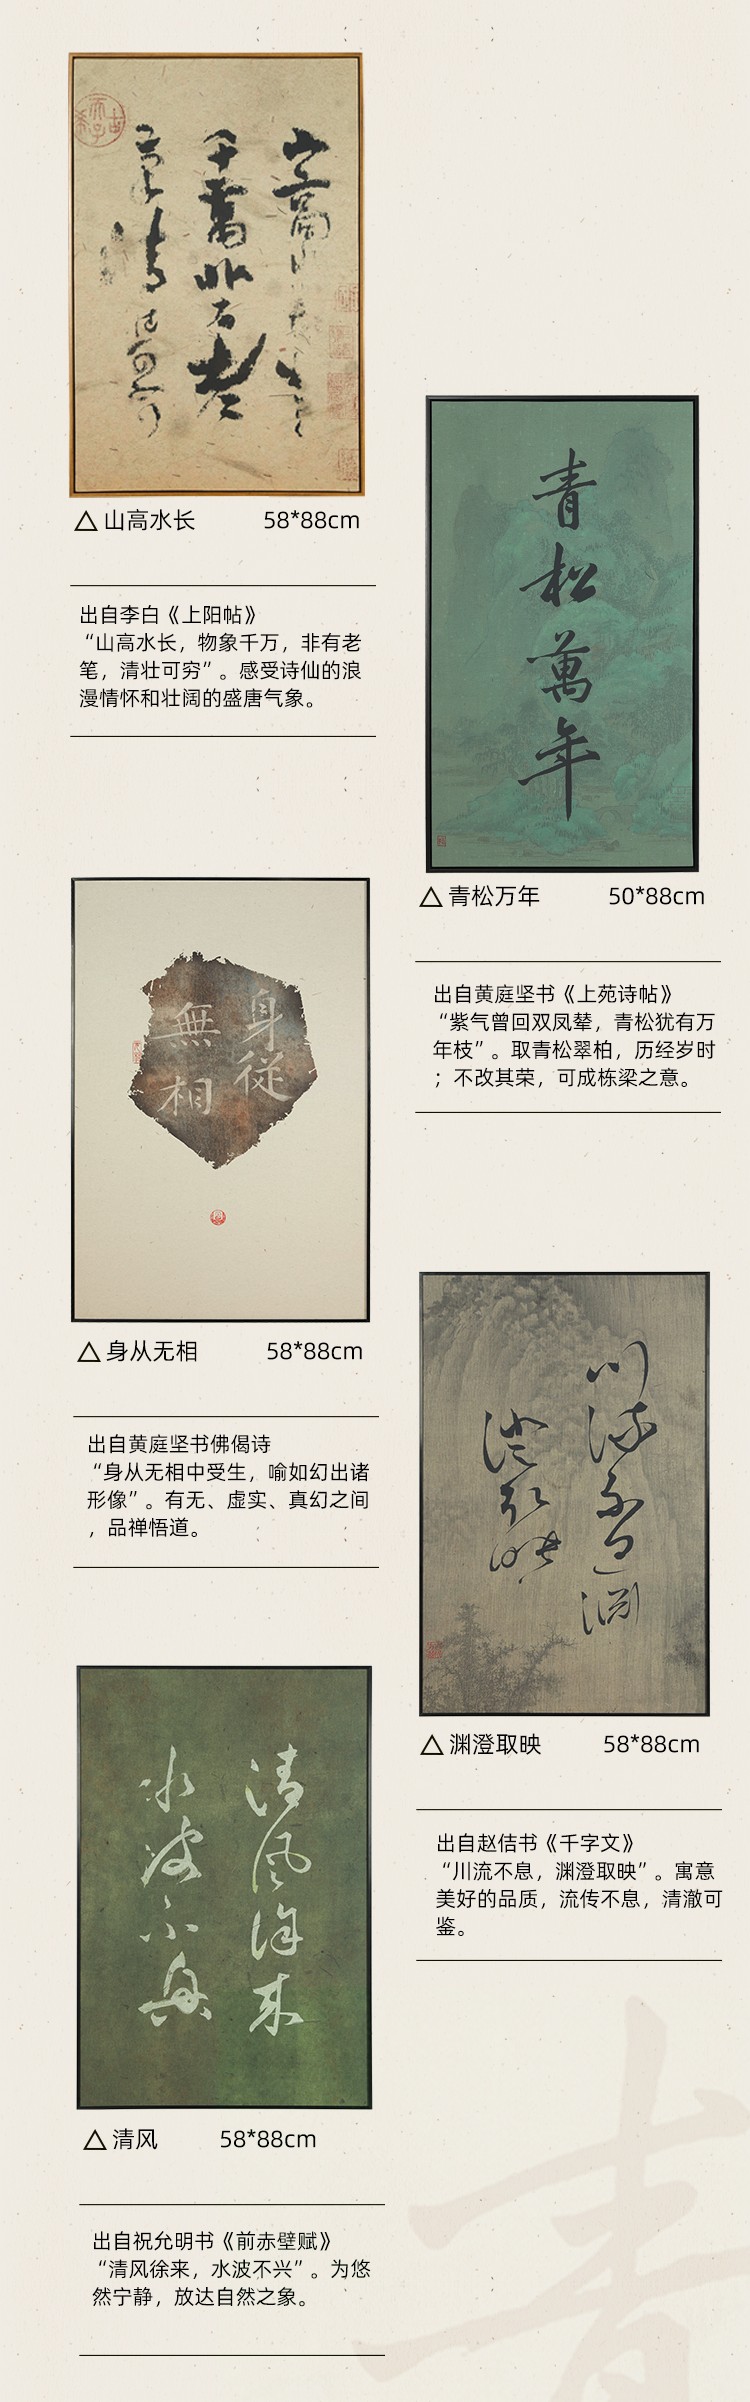 山高水长
千万非有老
笔清壮可穷
△ 山高水长 58*88cm
出自李白《上阳帖》
“山高水长，物象千万，非有老
笔，清壮可穷”。感受诗仙的浪
漫情怀和壮阔的盛唐气象。
青松萬年
△ 青松万年 50*88cm
出自黄庭坚书《上苑诗帖》
“紫气曾回双凤辇，青松犹有万
年枝”。取青松翠柏，历经岁时
；不改其荣，可成栋梁之意。
身從
無相
△ 身从无相 58*88cm
出自黄庭坚书佛偈诗
“身从无相中受生，喻如幻出诸
形像”。有无、虚实、真幻之间
，品禅悟道。
川流不息渊
澄取映
△ 渊澄取映 58*88cm
出自赵佶书《千字文》
“川流不息，渊澄取映”。寓意
美好的品质，流传不息，清澈可
鉴。
清风徐来
水波不興
△ 清风 58*88cm
出自祝允明书《前赤壁赋》
“清风徐来，水波不兴”。为悠
然宁静，放达自然之象。
青